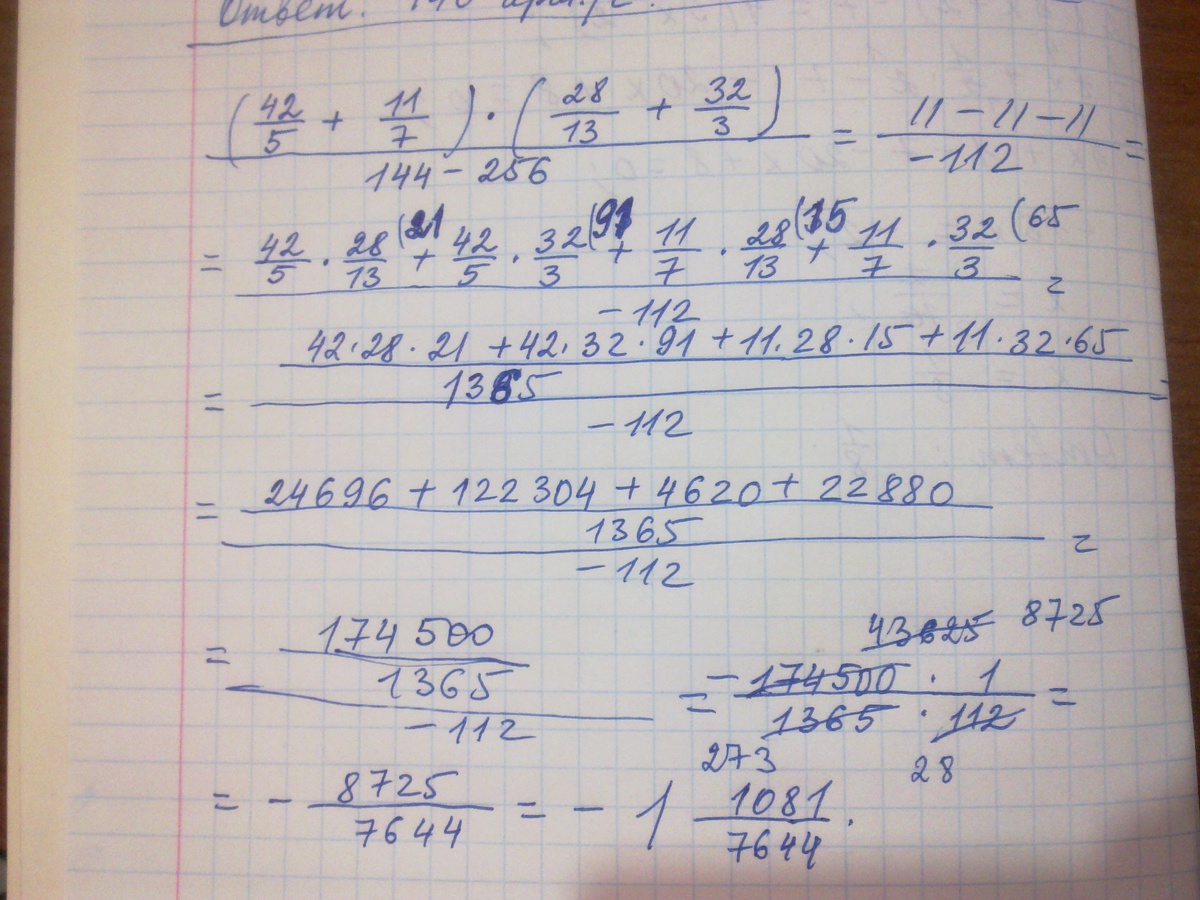 Ответ: 140
(42/5 + 11/7) · (28/13 + 32/3) / 144 - 256 = 11 - 11 - 11 / -112 =
= 42/5 · 28/13 (21 + 42/5 · 32/3 (91 + 11/7 · 28/13 (15 + 11/7 · 32/3 (65 / -112 =
= 42·28·21 + 42·32·91 + 11·28·15 + 11·32·65 / 1365 / -112 =
= 24696 + 122304 + 4620 + 22880 / 1365 / -112 =
43625 8725
= 174500 / 1365 / -112 = - 174500 · 1 / 1365 · 112 =
273 28
= - 8725/7644 = - 1 1081/7644.